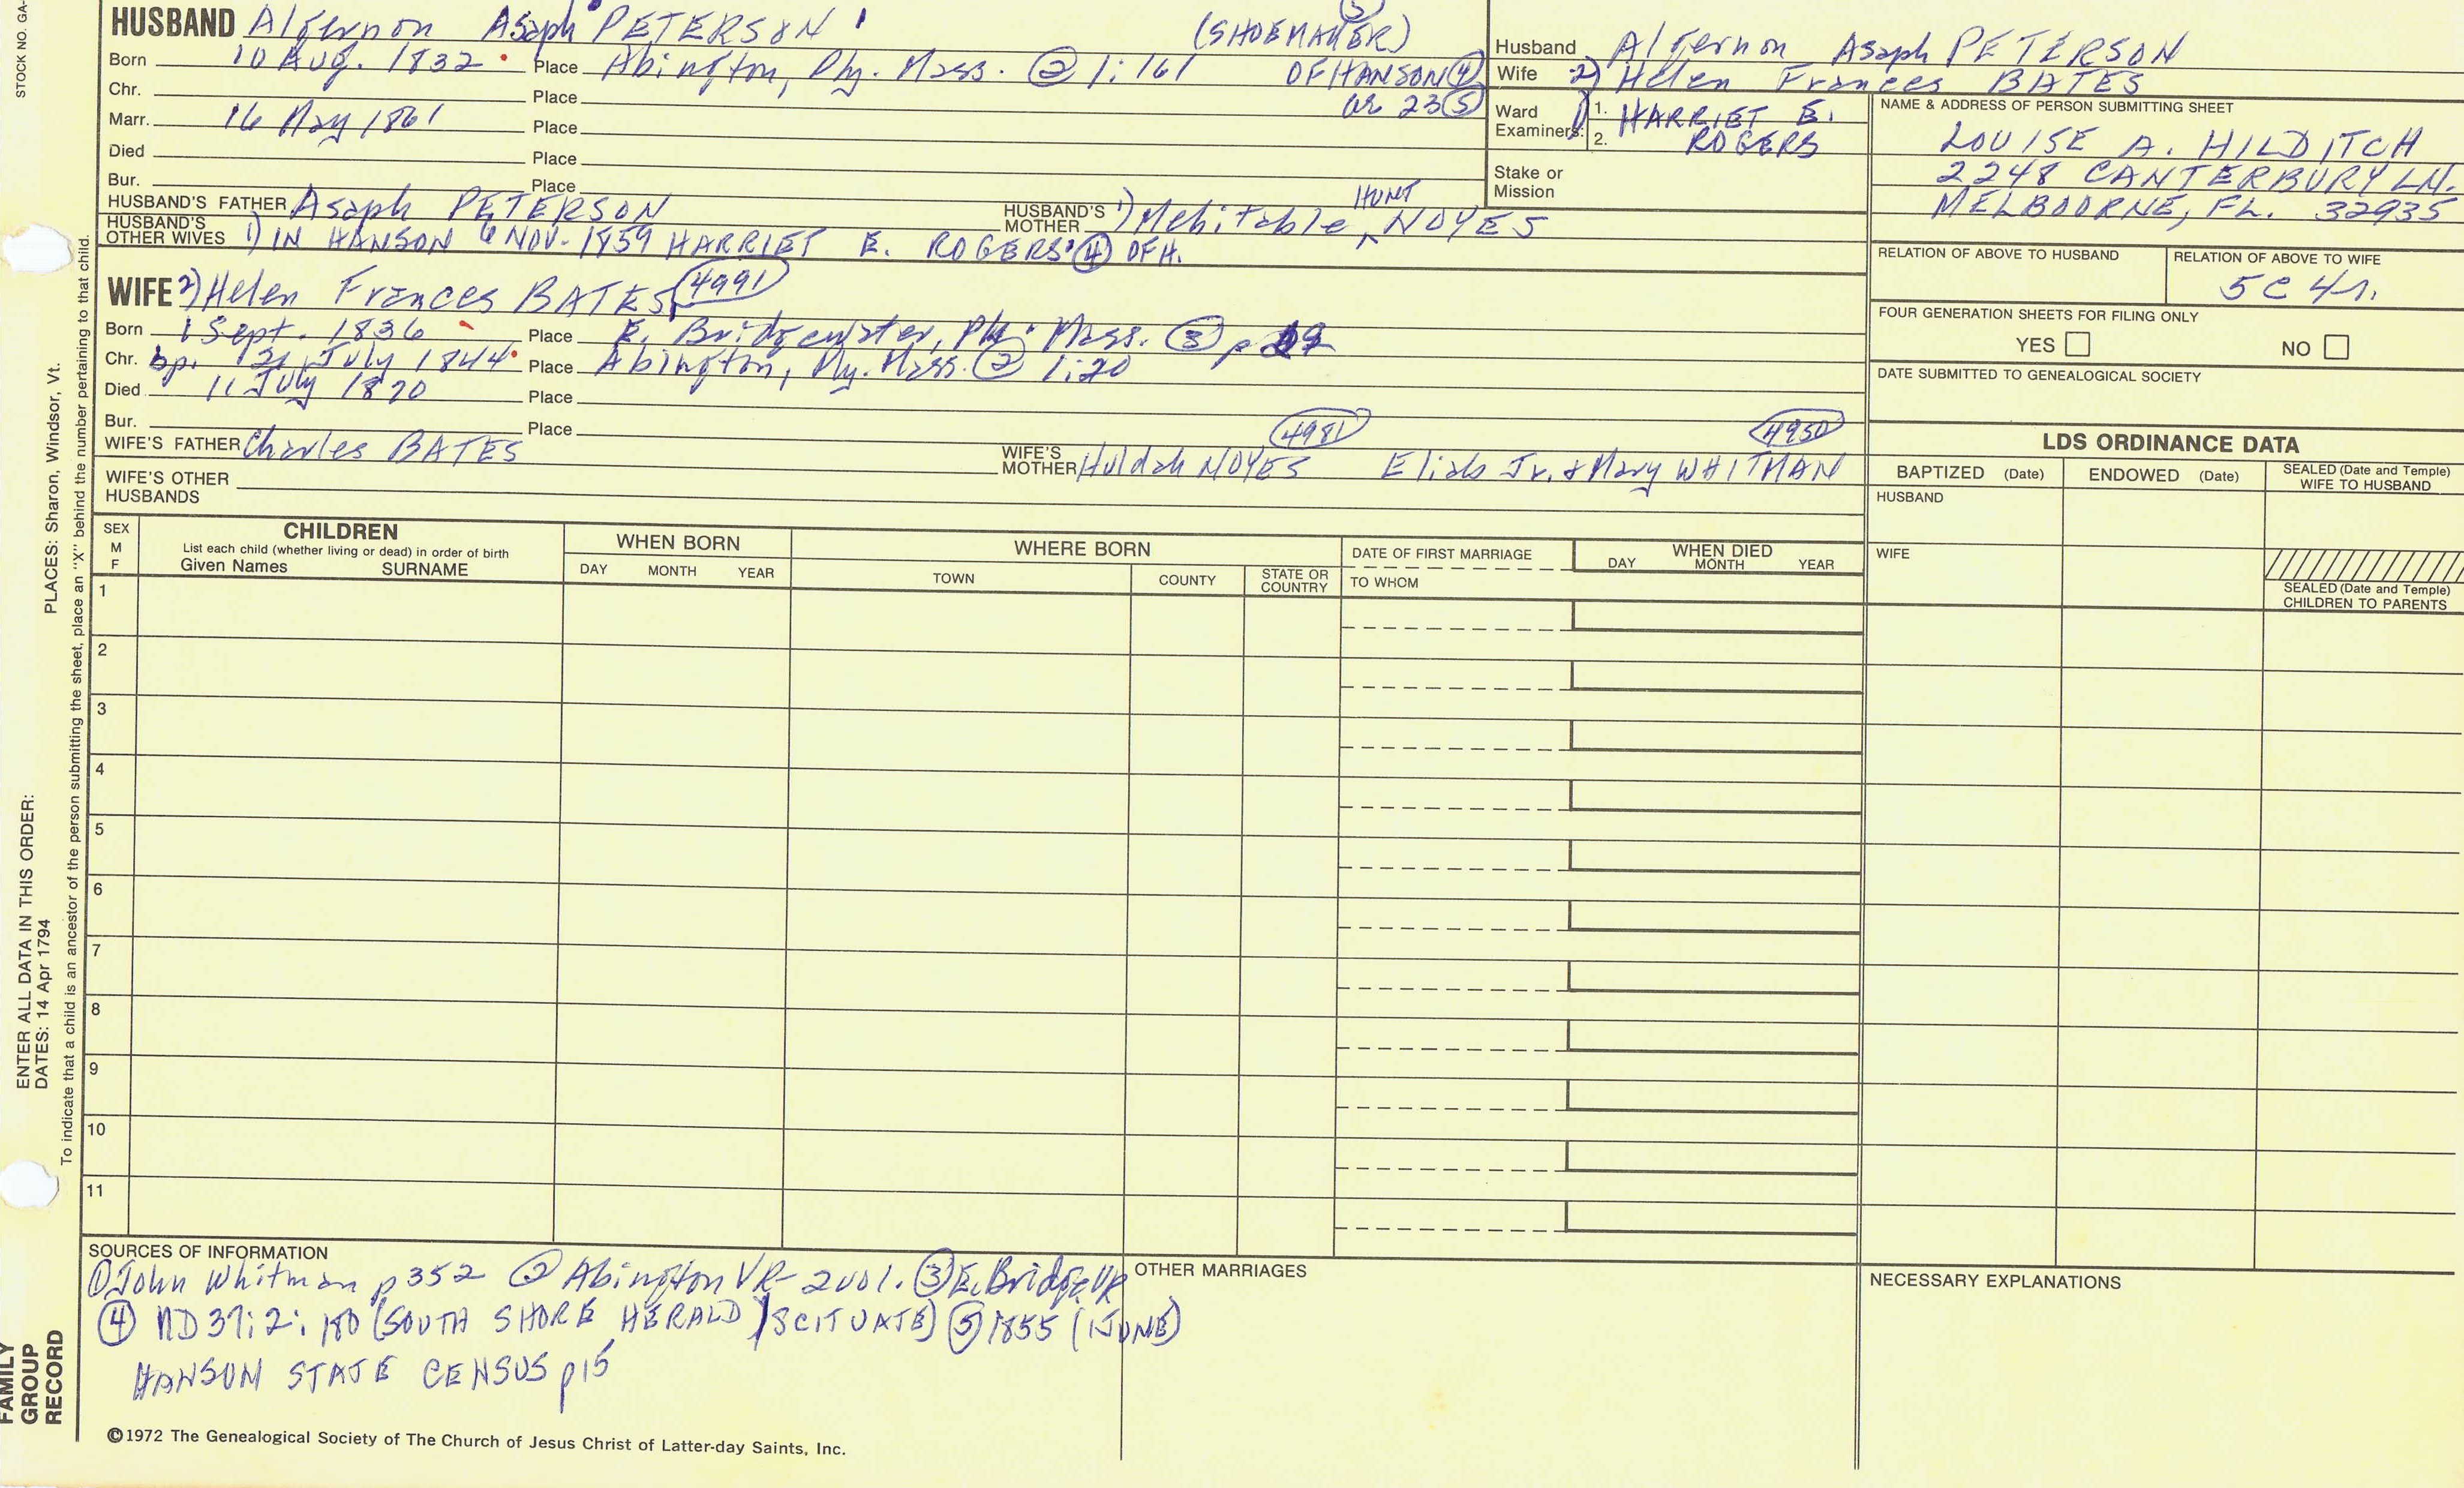 STOCK NO. GA-
HUSBAND Algernon Asaph PETERSON (SHOEMAKER) 5
Born 10 Aug. 1832 Place Abington, Ply. Mass. 2 1:161 OF HANSON 4
Chr. Place ae 23 5
Marr. 16 May 1861 Place
Died Place
Bur. Place
HUSBAND'S FATHER Asaph PETERSON HUSBAND'S MOTHER 1) Mehitable HUNT NOYES
HUSBAND'S OTHER WIVES 1) IN HANSON 6 NOV. 1859 HARRIET E. ROGERS 4 OF H.
WIFE 2) Helen Frances BATES 4991
Born 1 Sept. 1836 Place E. Bridgewater, Ply. Mass. 3 p
Chr. bp. 21 July 1844 Place Abington, Ply. Mass. 2 1:20
Died 11 July 1870 Place
Bur. Place
WIFE'S FATHER Charles BATES WIFE'S MOTHER Huldah NOYES 4981 Eliab Jr. & Mary WHITMAN 4950
WIFE'S OTHER HUSBANDS
Husband Algernon Asaph PETERSON
Wife 2) Helen Frances BATES
Ward Examiners: 1. 2. 1) HARRIET E. ROGERS
Stake or Mission
NAME & ADDRESS OF PERSON SUBMITTING SHEET
LOUISE A. HILDITCH
2248 CANTERBURY LN.
MELBOURNE, FL. 32935
RELATION OF ABOVE TO HUSBAND
RELATION OF ABOVE TO WIFE
5C 4r.
FOUR GENERATION SHEETS FOR FILING ONLY
YES NO
DATE SUBMITTED TO GENEALOGICAL SOCIETY
LDS ORDINANCE DATA
BAPTIZED (Date) ENDOWED (Date) SEALED (Date and Temple) WIFE TO HUSBAND
HUSBAND
WIFE
SEALED (Date and Temple) CHILDREN TO PARENTS
SEX M F
CHILDREN
List each child (whether living or dead) in order of birth
Given Names SURNAME
WHEN BORN
DAY MONTH YEAR
WHERE BORN
TOWN COUNTY STATE OR COUNTRY
DATE OF FIRST MARRIAGE
TO WHOM
WHEN DIED
DAY MONTH YEAR
1
2
3
4
5
6
7
8
9
10
11
SOURCES OF INFORMATION
1 John Whitman p352 2 Abington VR- 2 vol. 3 E. Bridge VR
4 ND 37:2:180 (SOUTH SHORE HERALD) SCITUATE) 5 1855 (1 JUNE)
HANSON STATE CENSUS p15
OTHER MARRIAGES
NECESSARY EXPLANATIONS
©1972 The Genealogical Society of The Church of Jesus Christ of Latter-day Saints, Inc.
PLACES: Sharon, Windsor, Vt.
ENTER ALL DATA IN THIS ORDER:
DATES: 14 Apr 1794
To indicate that a child is an ancestor of the person submitting the sheet, place an "X" behind the number pertaining to that child.
FAMILY GROUP RECORD